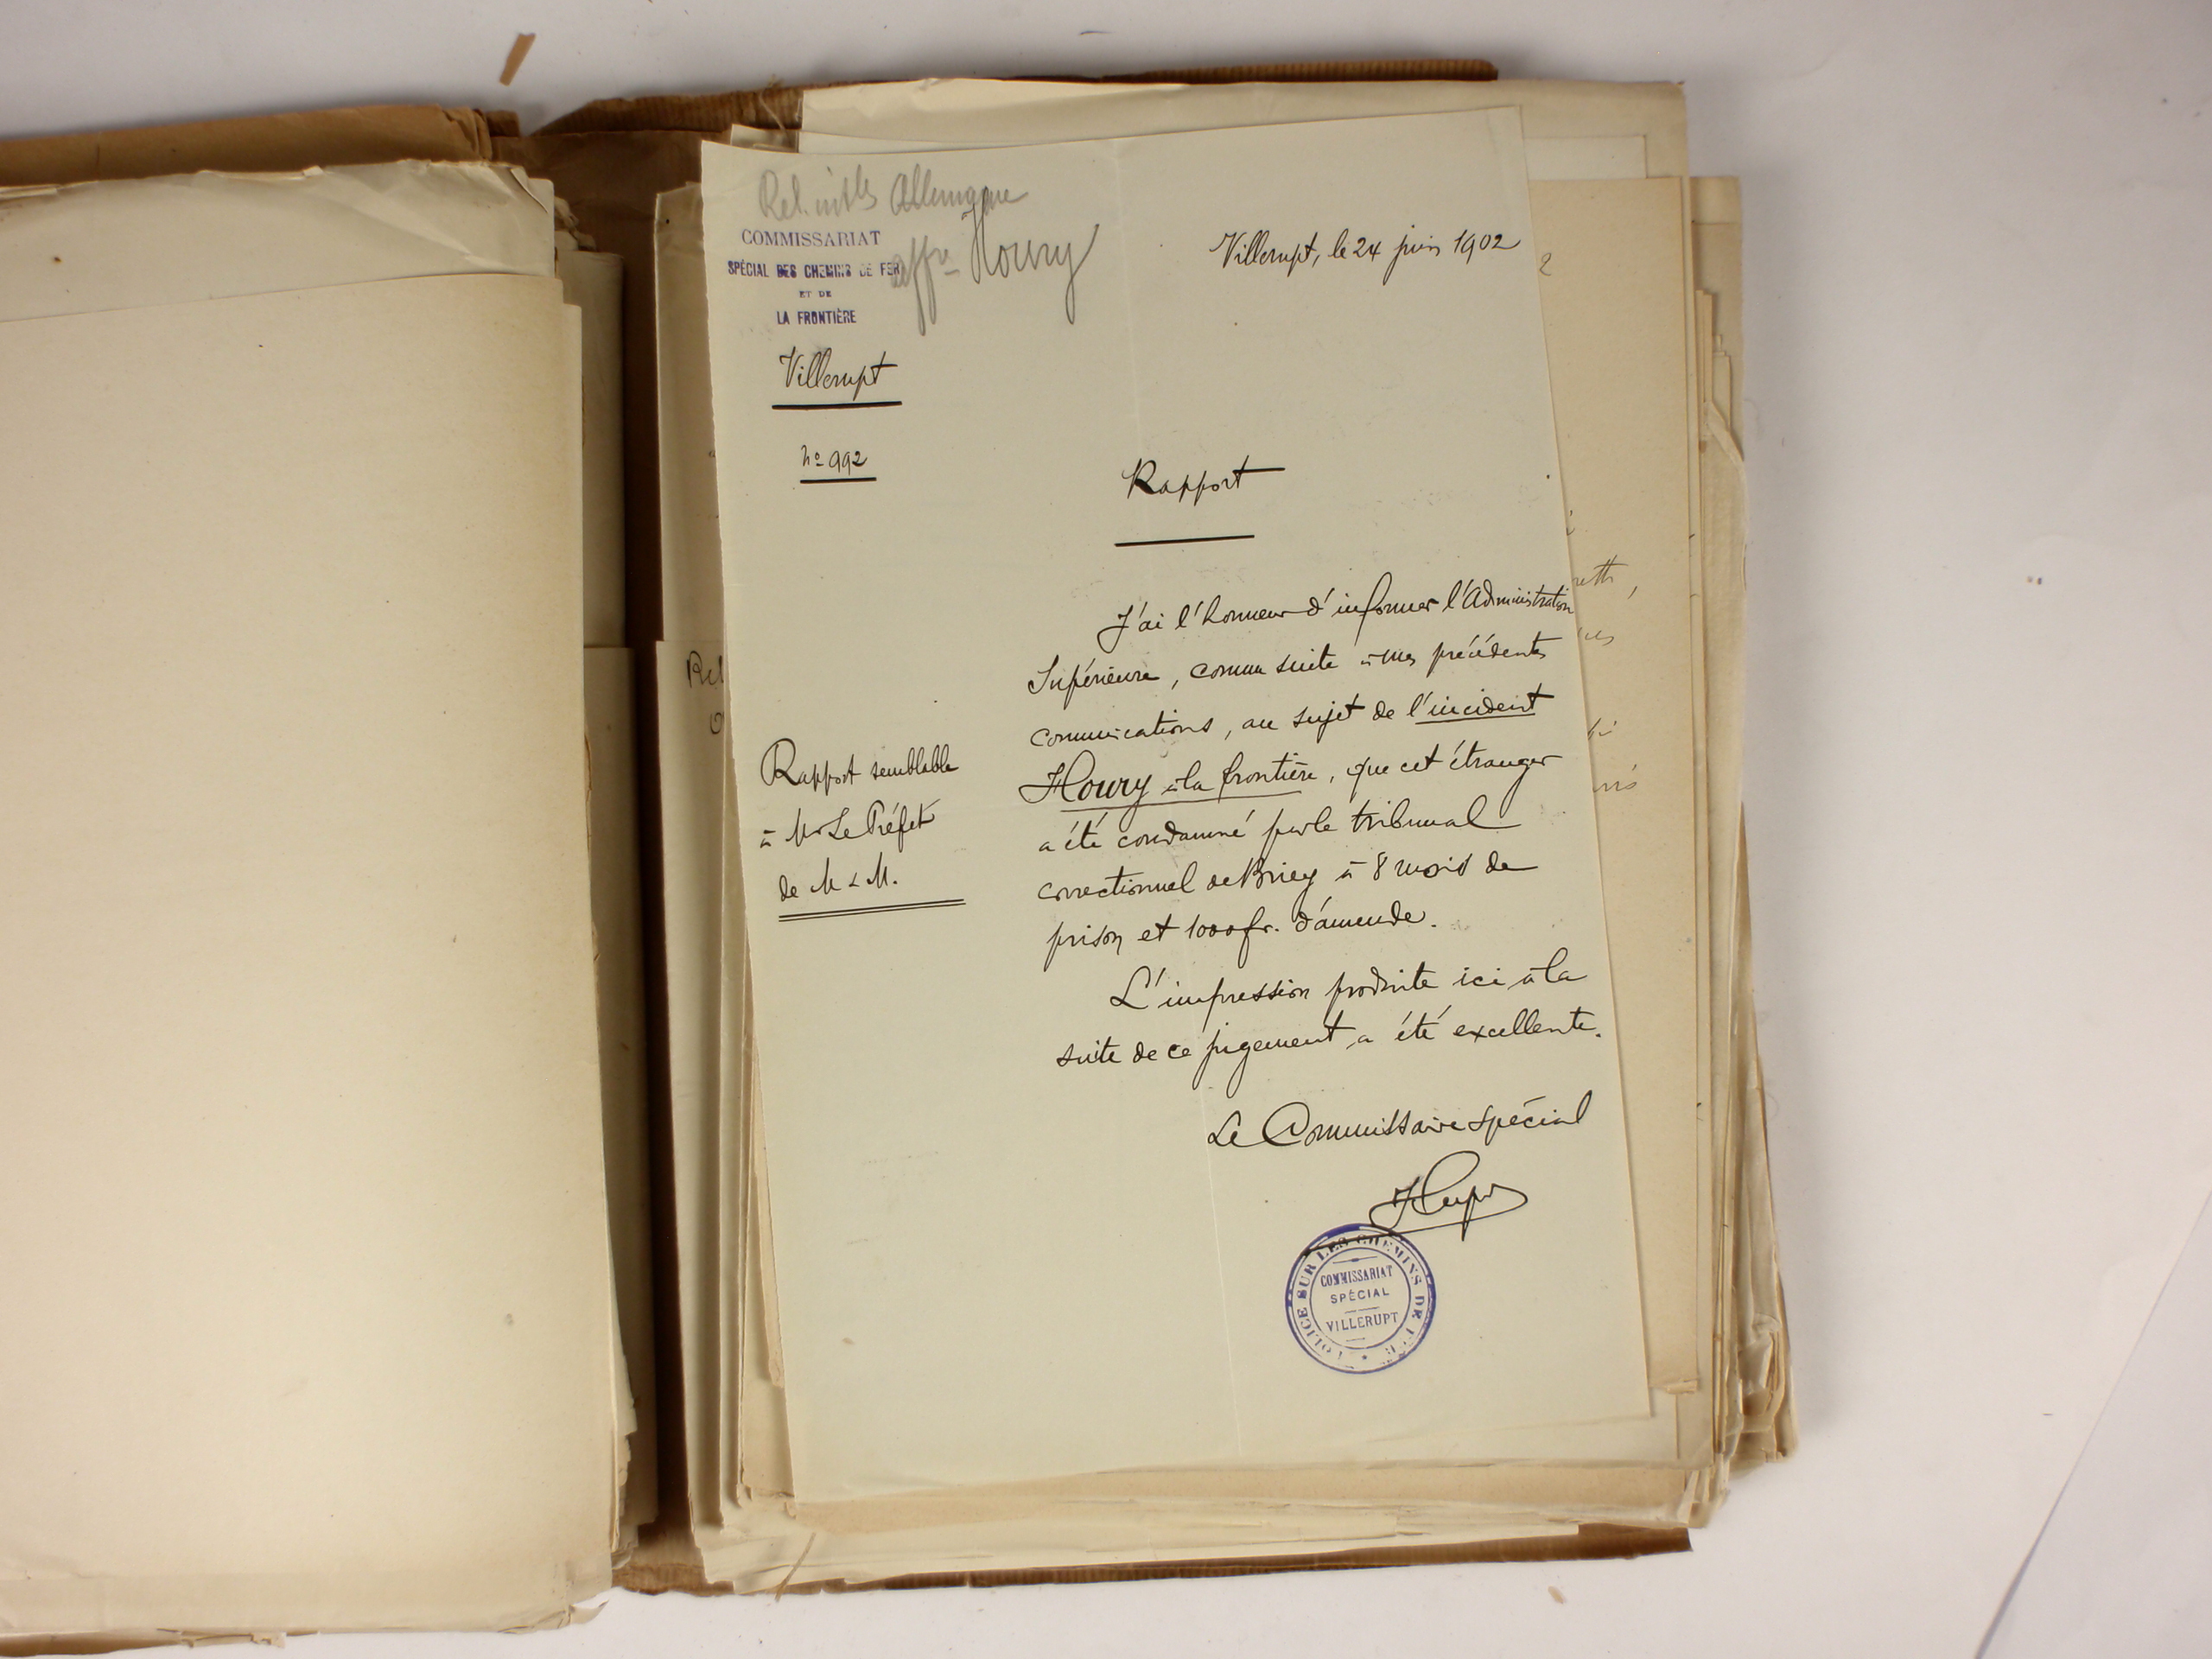 Rel. intles Allemagne
affre Houry
COMMISSARIAT
SPÉCIAL DES CHEMINS DE FER
ET DE
LA FRONTIÈRE
Villerupt
No 992
Villerupt, le 24 juin 1902
Rapport
J'ai l'honneur d'informer l'Administration
Supérieure, comme suite à mes précédentes
communications, au sujet de l'incident
Houry à la frontière, que cet étranger
a été condamné par le tribunal
correctionnel de Briey à 8 mois de
prison et 1000 fr. d'amende.
L'impression produite ici à la
suite de ce jugement, a été excellente.
Rapport semblable
à Mr Le Préfet
de M & M.
Le Commissaire spécial
POLICE SUR LES CHEMINS DE FER
COMMISSARIAT
SPÉCIAL
VILLERUPT